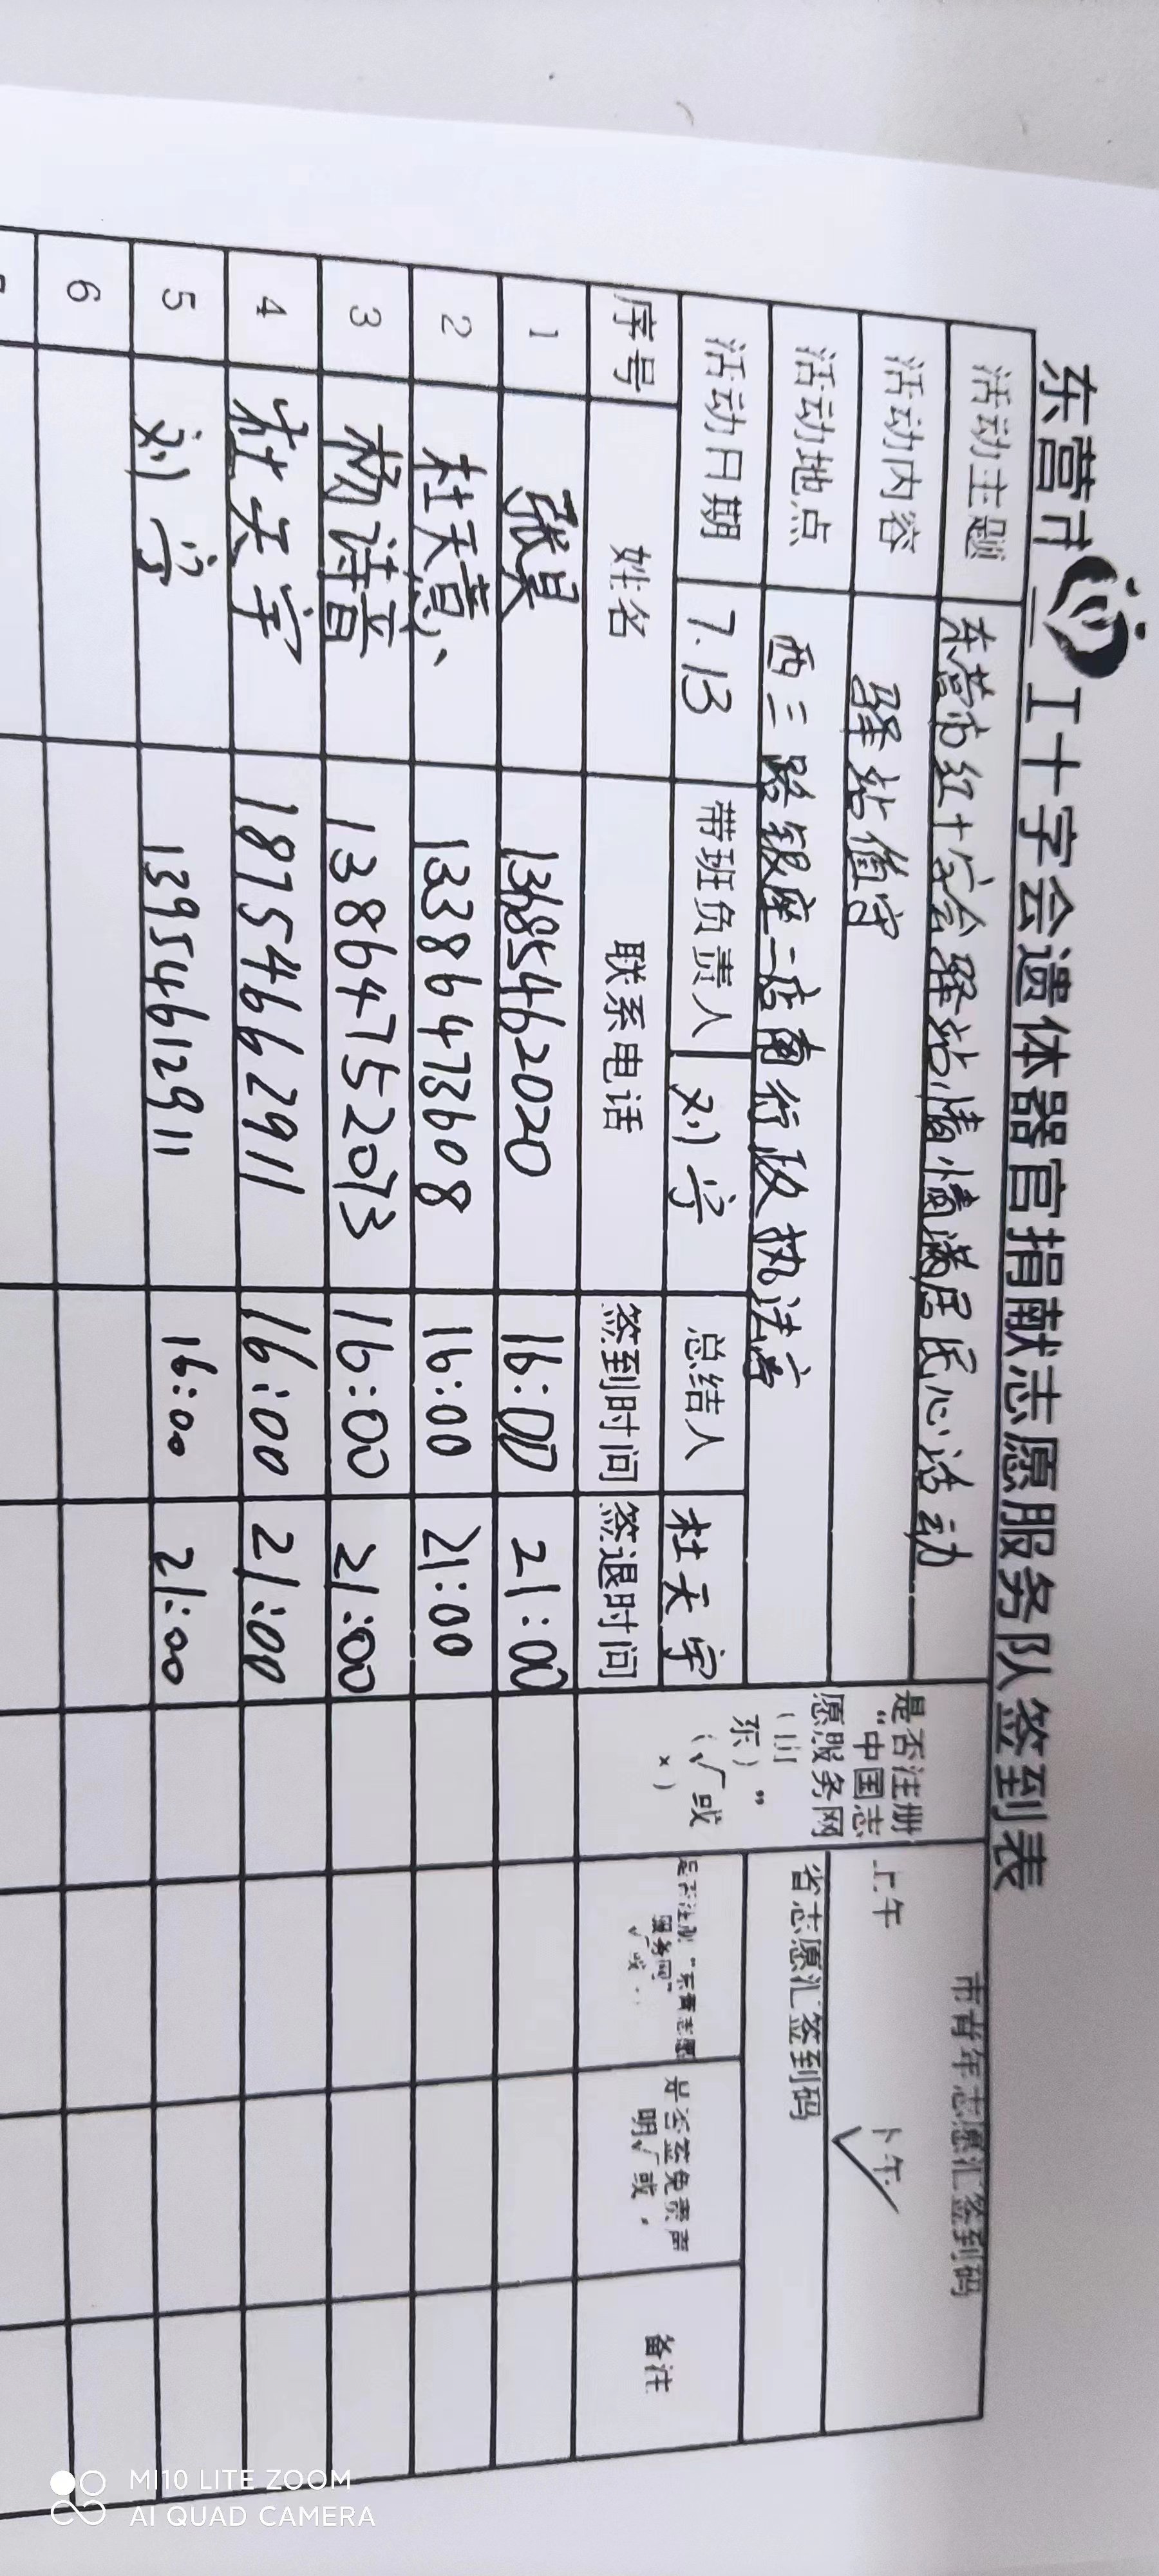 东营市 工十字会遗体器官捐献志愿服务队签到表
活动主题 东营市红十字会驿站情情满居民心活动
活动内容 驿站值守
活动地点 西三路银座二店南行政执法旁
活动日期 7.13 带班负责人 刘宁 总结人 杜天宇
是否注册
“中国志
愿服务网
(山
东)”
(√或
×)
市青年志愿汇签到码
上午 下午 √
省志愿汇签到码
序号 姓名 联系电话 签到时间 签退时间
是否注册“东青志愿
服务网”
√或
是否签免责声
明√或
备注
1 张昊 13685462020 16:00 21:00
2 杜天意 13386473608 16:00 21:00
3 杨诗音 13864752073 16:00 21:00
4 杜天宇 18754662911 16:00 21:00
5 刘宁 13954612911 16:00 21:00
6
MI10 LITE ZOOM
AI QUAD CAMERA